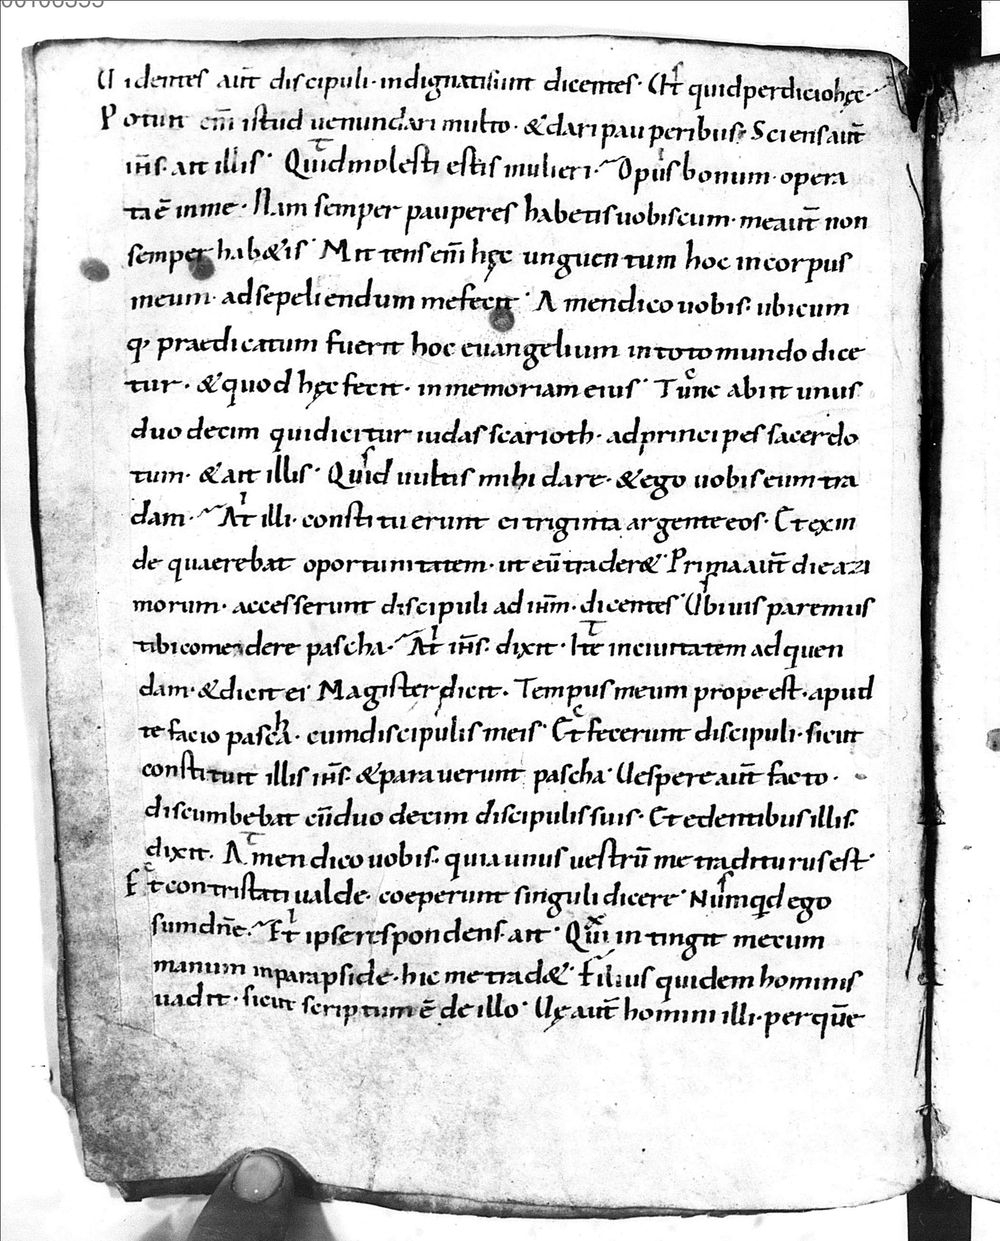 Uidentes aut̄ discipuli· indignati sunt dicentes· Ut quid perditio hęc·
Potuit em̄ istud uenundari multo· & dari pauperibus; Sciens aut̄
ih̄s· ait illis· Quid molesti estis mulieri· Opus bonum· opera
ta ē in me· Nam semper pauperes habetis uobiscum· me aut̄ non
semper hab&is· Mittens em̄ hęc unguentum hoc in corpus
meum· ad sepeliendum me fecit· Amen dico uobis· ubicum
q· praedicatum fuerit hoc euangelium in toto mundo dice
tur· & quod hęc fecit· in memoriam eius· Tunc abiit unus
duodecim qui dicitur iudas scarioth· ad principes sacerdo
tum· & ait illis· Quid uultis mihi dare· & ego uobis eum tra
dam· At illi· constituerunt ei triginta argenteos· Et exin
de quaerebat oportunitatem· ut eū trader&· Prima aut̄ die azi
morum· accesserunt discipuli ad ih̄m· dicentes· Ubi uis paremus
tibi comedere pascha· At ih̄s· dixit· Ite in ciuitatem ad quen
dam· & dicit ei· Magister dicit· Tempus meum prope est· apud
te facio pascha· cum discipulis meis· Et fecerunt discipuli· sicut
constituit illis ih̄s· & parauerunt pascha· Uespere aut̄ facto·
discumbebat cū duodecim discipulis suis· Et edentibus illis·
dixit· Amen dico uobis· quia unus uestrū me traditurus est·
Et contristati ualde· coeperunt singuli dicere· Numqid ego
sum dn̄e· Et ipse respondens· ait· Qui intingit mecum
manum in parapside· hic me trad&· Filius quidem hominis
uadit· sicut scriptum ē de illo· Uę aut̄ homini illi· per quē